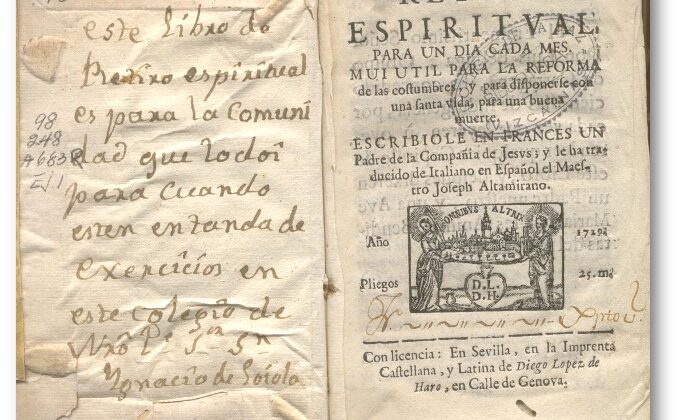 este Libro de
Retiro espiritual
es para la Comuni
dad que lo doi
para cuando
esten en tanda de
exercicios en
este colegio de
Nro Pe Sn Sn
Ygnacio de Loiola
98
248
A683R
EJ1
ESPIRITVAL,
PARA UN DIA CADA MES.
MUI UTIL PARA LA REFORMA
de las costumbres, y para disponerse con
una santa vida, para una buena
muerte,
ESCRIBIOLE EN FRANCES UN
Padre de la Compañia de Jesvs; y le ha tra-
ducido de Italiano en Español el Maes-
tro Joseph Altamirano.
OMNIBVS ALTRIX
Año 1729.
Pliegos 25. m.
D.L.
D.H.
Con licencia: En Sevilla, en la Imprenta
Castellana, y Latina de Diego Lopez de
Haro, en Calle de Genova.